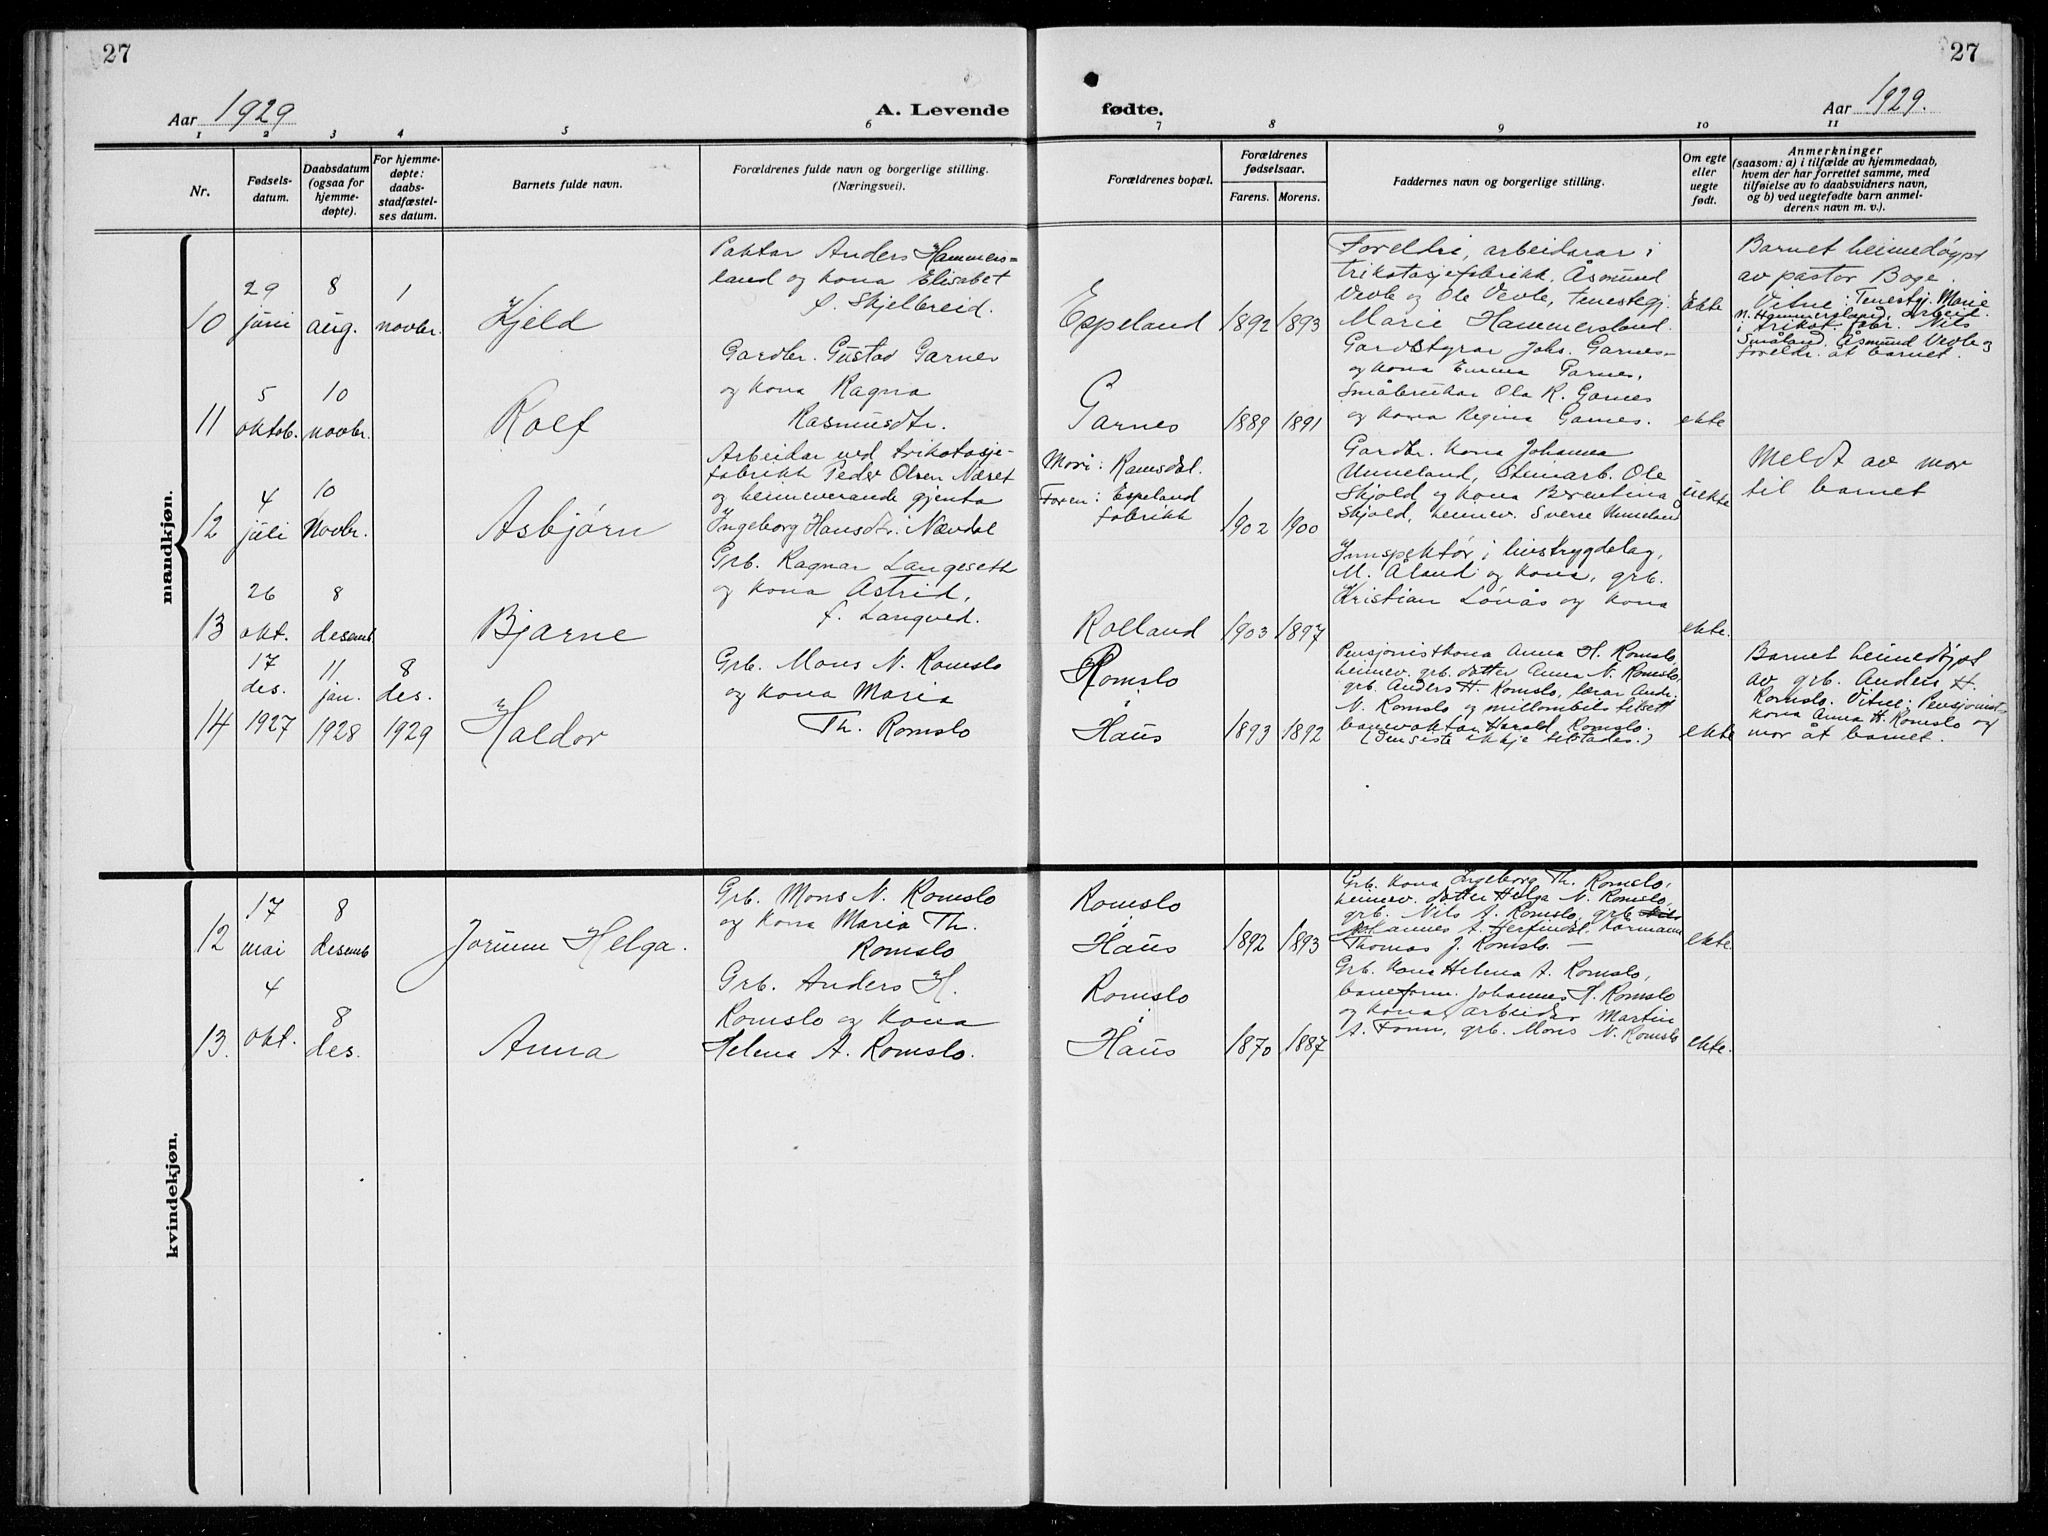 27
27
Aar 1929
A. Levende
fødte.
Aar 1929.
1 2 3 4 5 6 7 8 9 10 11
Nr.
Fødsels-
datum.
Daabsdatum
(ogsaa for
hjemme-
døpte).
For hjemme-
døpte:
daabs-
stadfæstel-
ses datum.
Barnets fulde navn.
Forældrenes fulde navn og borgerlige stilling.
(Næringsvei).
Forældrenes bopæl.
Forældrenes
fødselsaar.
Farens. Morens.
Faddernes navn og borgerlige stilling.
Om egte
eller
uegte
født.
Anmerkninger
(saasom: a) i tilfælde av hjemmedaab,
hvem der har forrettet samme, med
tilføielse av to daabsvidners navn,
og b) ved uegtefødte barn anmel-
derens navn m. v.).
mandkjøn.
10
29
juni
8
aug.
1
novbr.
Kjeld
Paktar Anders Hammers=
land og kona Elisabet
f. Skjelbreid.
Espeland
1892 1893
Foreldri, arbeidarar i
trikotasjefabrikk. Åsmund
Vevle og Ole Vevle, tenestegj.
Marie Hammersland.
ekte
Barnet heimedøypt
av pastor Boge.
Vitne: Tenestgj. Marie
N. Hammersland, arbeid.
i trikot. fabr. Nils
Småland. Åsmund Vevle og
foreldr. åt barnet.
11
5
oktob.
10
novbr.
Rolf
Gardbr. Gustav Garnes
og kona Ragna
Rasmusdtr.
Garnes
1889 1891
Gardstyrar Johs. Garnes
og kona Emma Garnes,
Småbrukar Ola R. Garnes
og kona Regina Garnes.
ekte
12
4
juli
10
Novbr.
Asbjørn
Arbeidar ved trikotasje-
fabrikk Peder Olsen Næset
og heimeverande gjenta
Ingeborg Hansdtr. Nævdal
Mori: Ramsdal.
Faren: Espeland
fabrikk
1902 1900
Gardbr. kona Johanna
Unneland, Steinarb. Ole
Skjold og kona Berentina
Skjold, heimev. Sverre Unneland
uekte
Meldt av mor
til barnet
13
26
okt.
8
desemb
Bjarne
Grb. Ragnar Langeseth
og kona Astrid,
f. Langved.
Rolland
1903 1897
Innspektør i livstrygdelag,
M. Åland og kona, grb.
Kristian Lönås og kona
ekte.
14
17
des.
1927
11
jan.
1928
8
des.
1929
Haldor
Grb. Mons N. Romslo
og kona Maria
Th. Romslo
Romslo
i
Haus
1893 1892
Pensjonistkona Anna H. Romslo,
heimev. grb. dotter Anna N. Romslo,
grb. Anders H. Romslo, lærar Andr.
N. Romslo og millombils tilsett
banevaktar Harald Romslo.
(Den siste ikkje tilstades.)
ekte
Barnet heimedøypt
av grb. Anders H.
Romslo. Vitne: Pensjonist-
kona Anna H. Romslo og
mor åt barnet.
kvindekjøn.
12
17
mai
8
desemb
Jorunn Helga.
Grb. Mons N. Romslo
og kona Maria Th.
Romslo
Romslo
i
Haus
1892 1893
Grb. kona Ingeborg Th. Romslo,
heimev. dotter Helga N. Romslo,
grb. Nils A. Romslo, grb.
Johannes A. Herfindal, kormann
Thomas J. Romslo. —
ekte.
13.
4
okt.
8
des.
Anna
Grb. Anders H.
Romslo og kona
Helena A. Romslo.
Romslo
i
Haus
1870 1887
Grb. kona Helena A. Romslo,
baneform. Johannes H. Romslo
og kona, arbeider Martin
A. Fonn, grb. Mons N. Romslo
ekte.